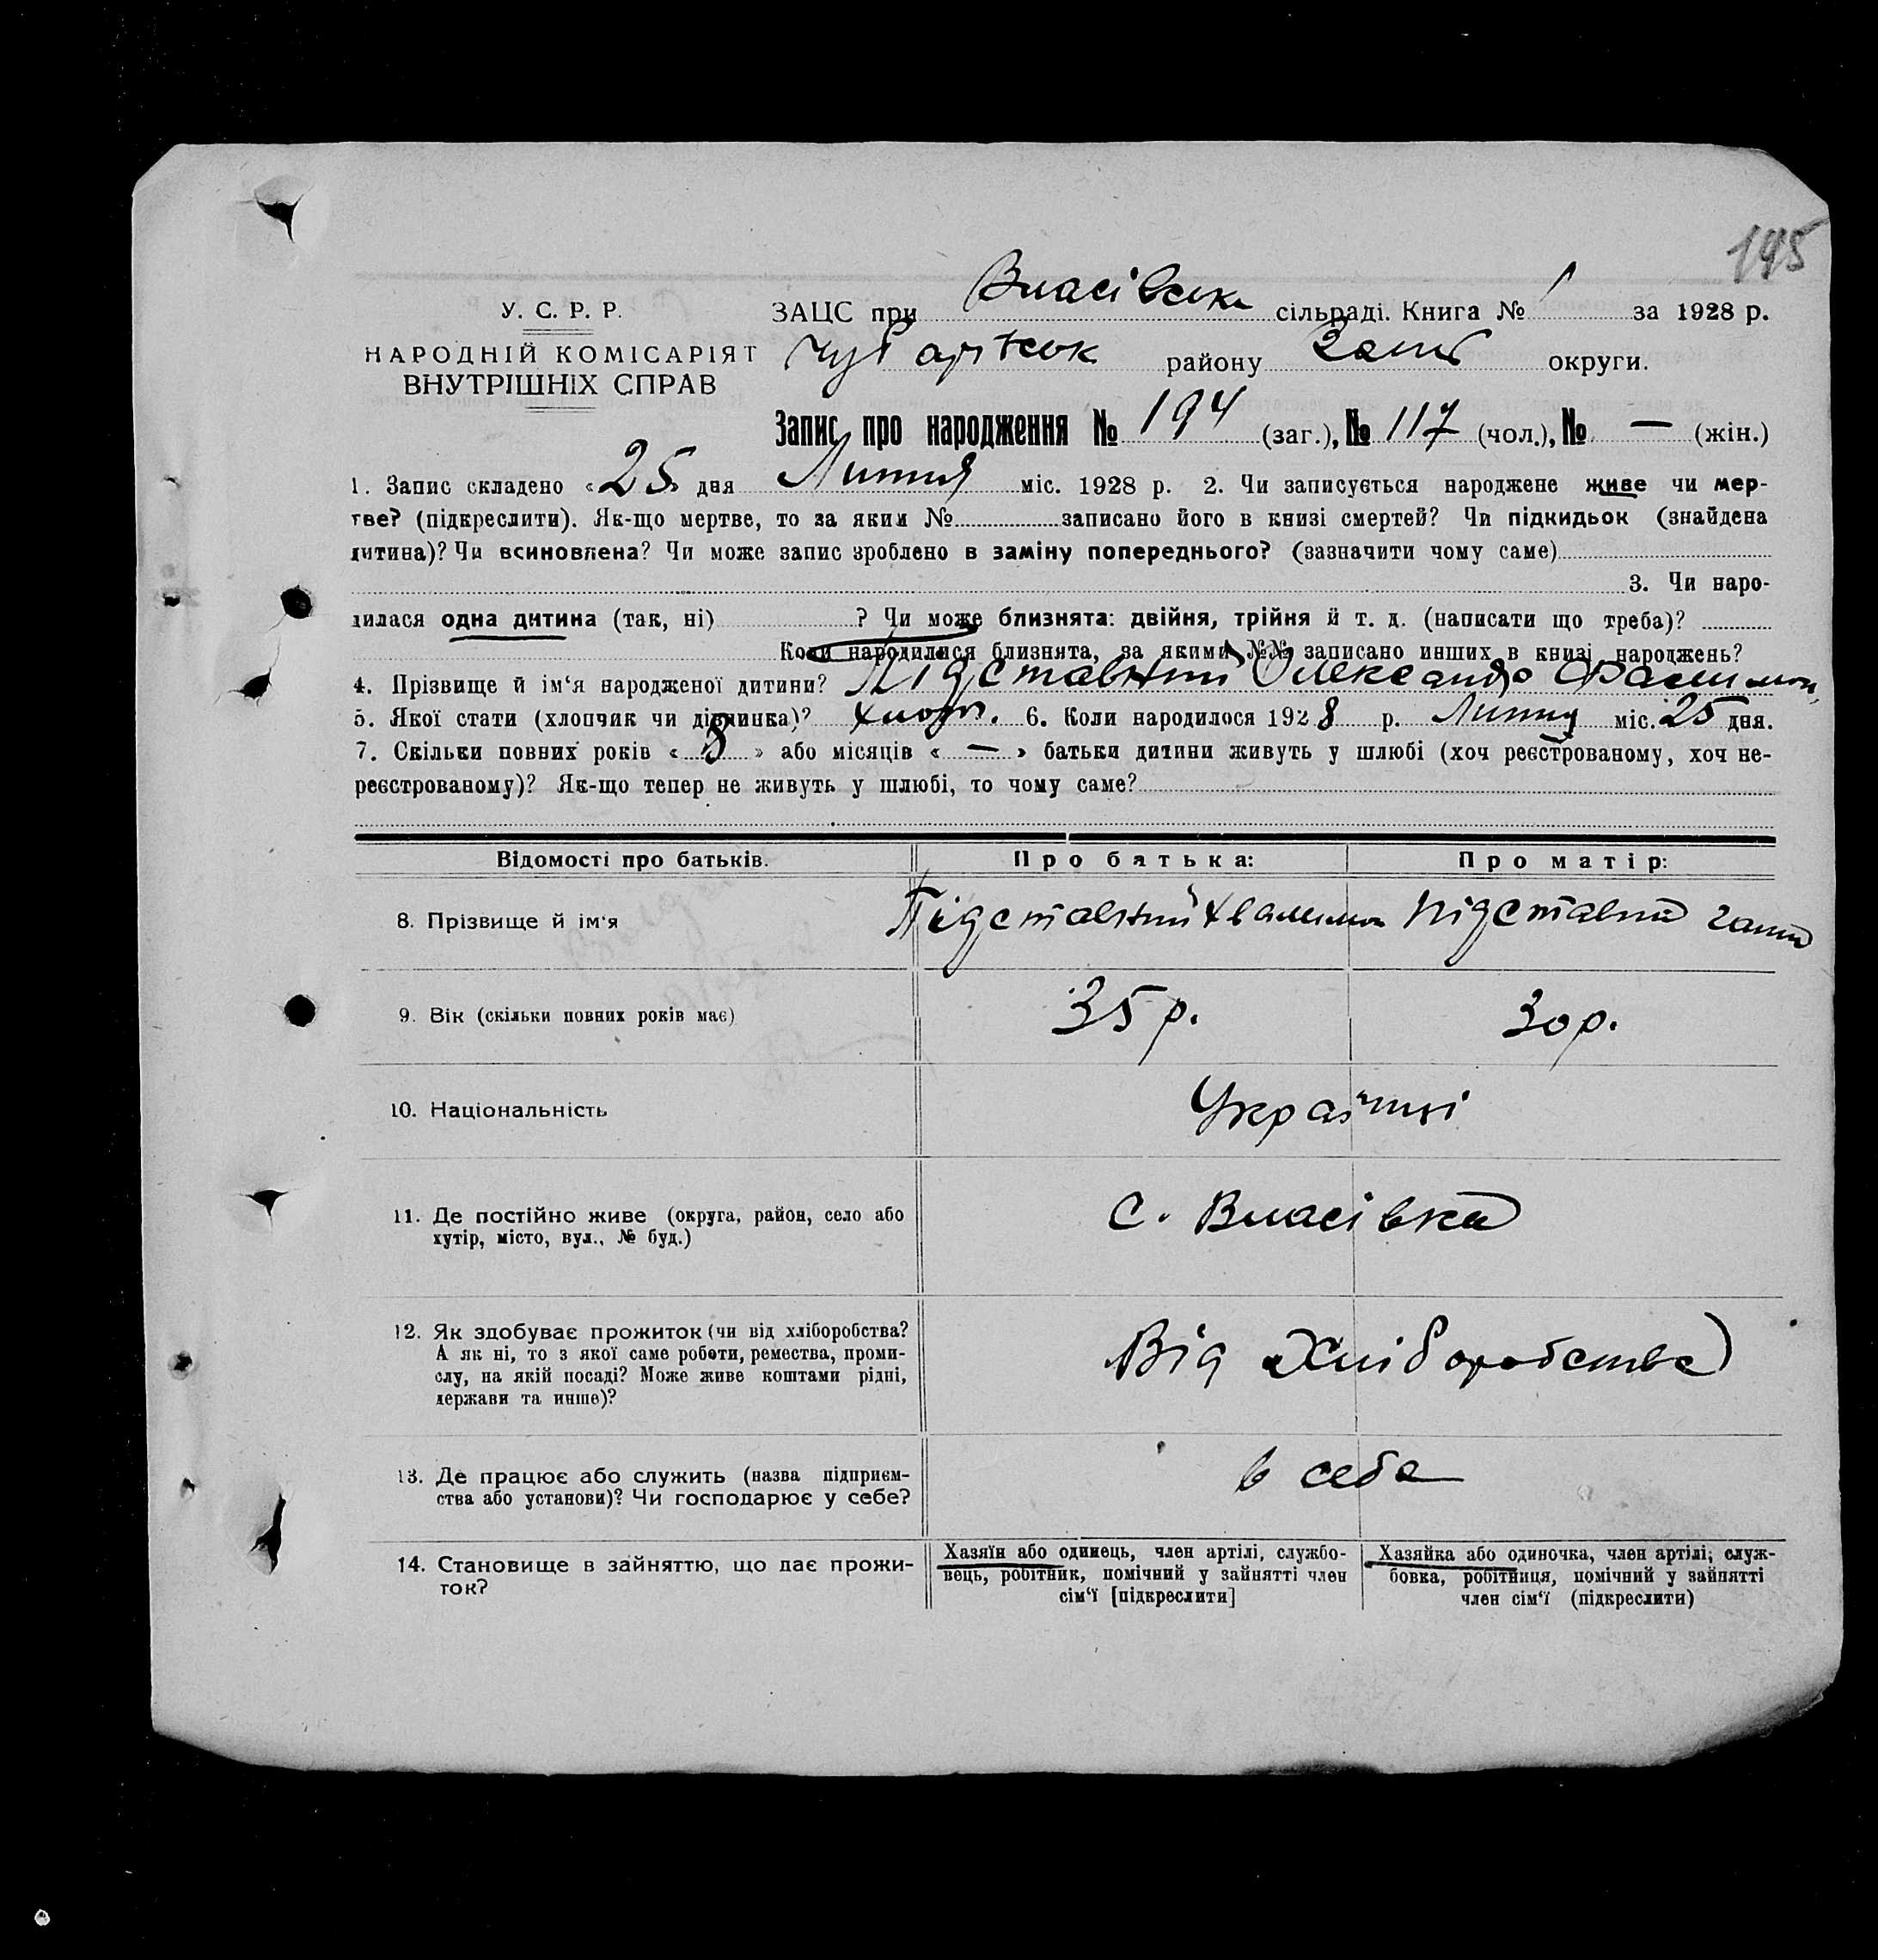 195
У. С. Р. Р.
НАРОДНІЙ КОМІСАРІЯТ
ВНУТРІШНІХ СПРАВ
ЗАЦС при Власівськ сільраді. Книга № 1 за 1928 р.
району округи.
Запис про народження № 194 (заг.), № 117 (чол.), № — (жін.)
1. Запис складено «25» дня Липня міс. 1928 р. 2. Чи записується народжене живе чи мер-
тве? (підкреслити). Як-що мертве, то за яким № записано його в книзі смертей? Чи підкидьок (знайдена
дитина)? Чи всиновлена? Чи може запис зроблено в заміну попереднього? (зазначити чому саме)
3. Чи наро-
дилася одна дитина (так, ні) ? Чи може близнята: двійня, трійня й т. д. (написати що треба)?
Коли народилися близнята, за якими №№ записано инших в книзі народжень?
4. Прізвище й ім‘я народженої дитини? Підставний Олександр
5. Якої стати (хлопчик чи дівчинка)? хлопч. 6. Коли народилося 1928 р. Липня міс. 25 дня.
7. Скільки повних років «8» або місяців «—» батьки дитини живуть у шлюбі (хоч реєстрованому, хоч не-
реєстрованому)? Як-що тепер не живуть у шлюбі, то чому саме?
Відомості про батьків. Про батька: Про матір:
8. Прізвище й ім‘я Підставний Хвалимон Підставна Ганна
9. Вік (скільки повних років має) 35 р. 30 р.
10. Національність Українці
11. Де постійно живе (округа, район, село або
хутір, місто, вул., № буд.) С. Власівка
12. Як здобуває прожиток (чи від хліборобства?
А як ні, то з якої саме роботи, ремества, проми-
слу, на якій посаді? Може живе коштами рідні,
держави та инше)? Від Хліборобства
13. Де працює або служить (назва підприєм-
ства або установи)? Чи господарює у себе? в себе
14. Становище в зайняттю, що дає прожи-
ток?
Хазяїн або одинець, член артілі, службо-
вець, робітник, помічний у зайнятті член
сім‘ї [підкреслити]
Хазяйка або одиночка, член артілі, служ-
бовка, робітниця, помічний у зайнятті
член сім‘ї (підкреслити)